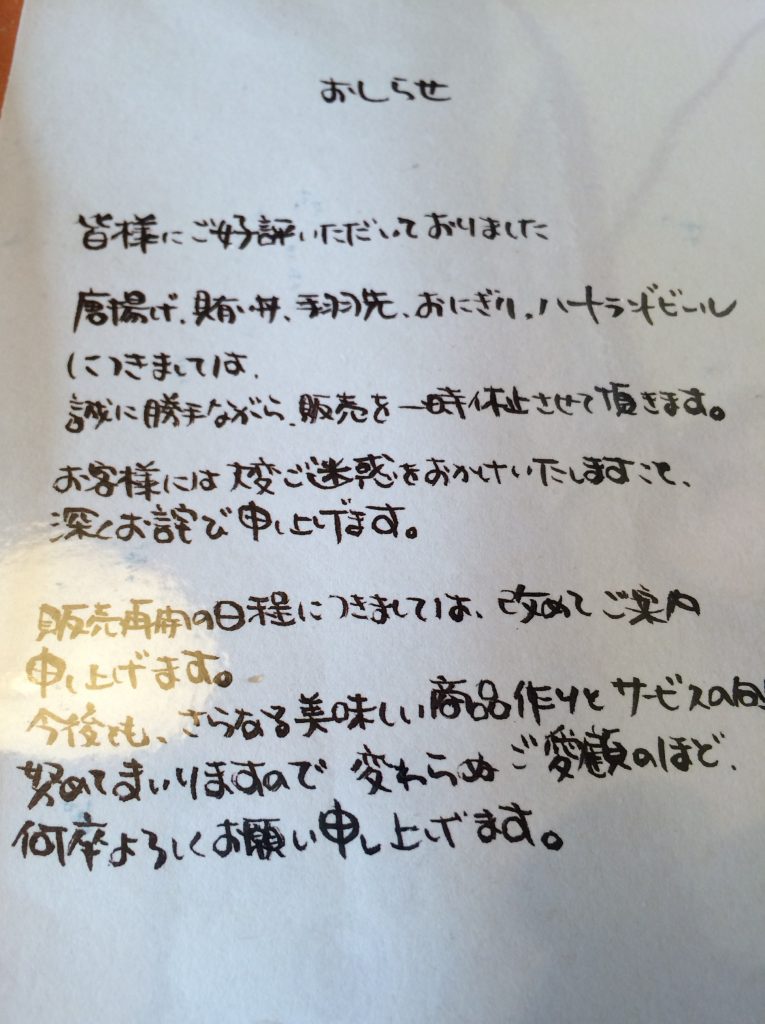 おしらせ
皆様にご好評いただいておりました
唐揚げ、賄い丼、手羽先、おにぎり、ハートランドビール
につきましては、
誠に勝手ながら、販売を一時休止させて頂きます。
お客様には大変ご迷惑をおかけいたしますこと、
深くお詫び申し上げます。
販売再開の日程につきましては、改めてご案内
申し上げます。
今後とも、さらなる美味しい商品作りとサービスの向
努めてまいりますので変わらぬご愛顧のほど、
何卒よろしくお願い申し上げます。